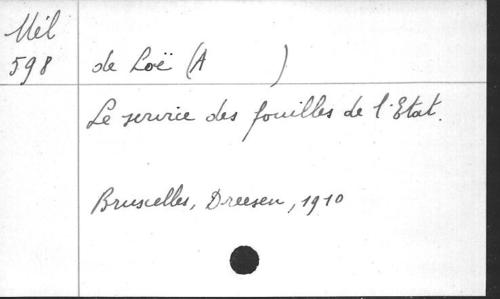 Mél
598
de Loë (A )
Le service des fouilles de l'Etat.
Bruxelles, Dreesen, 1910